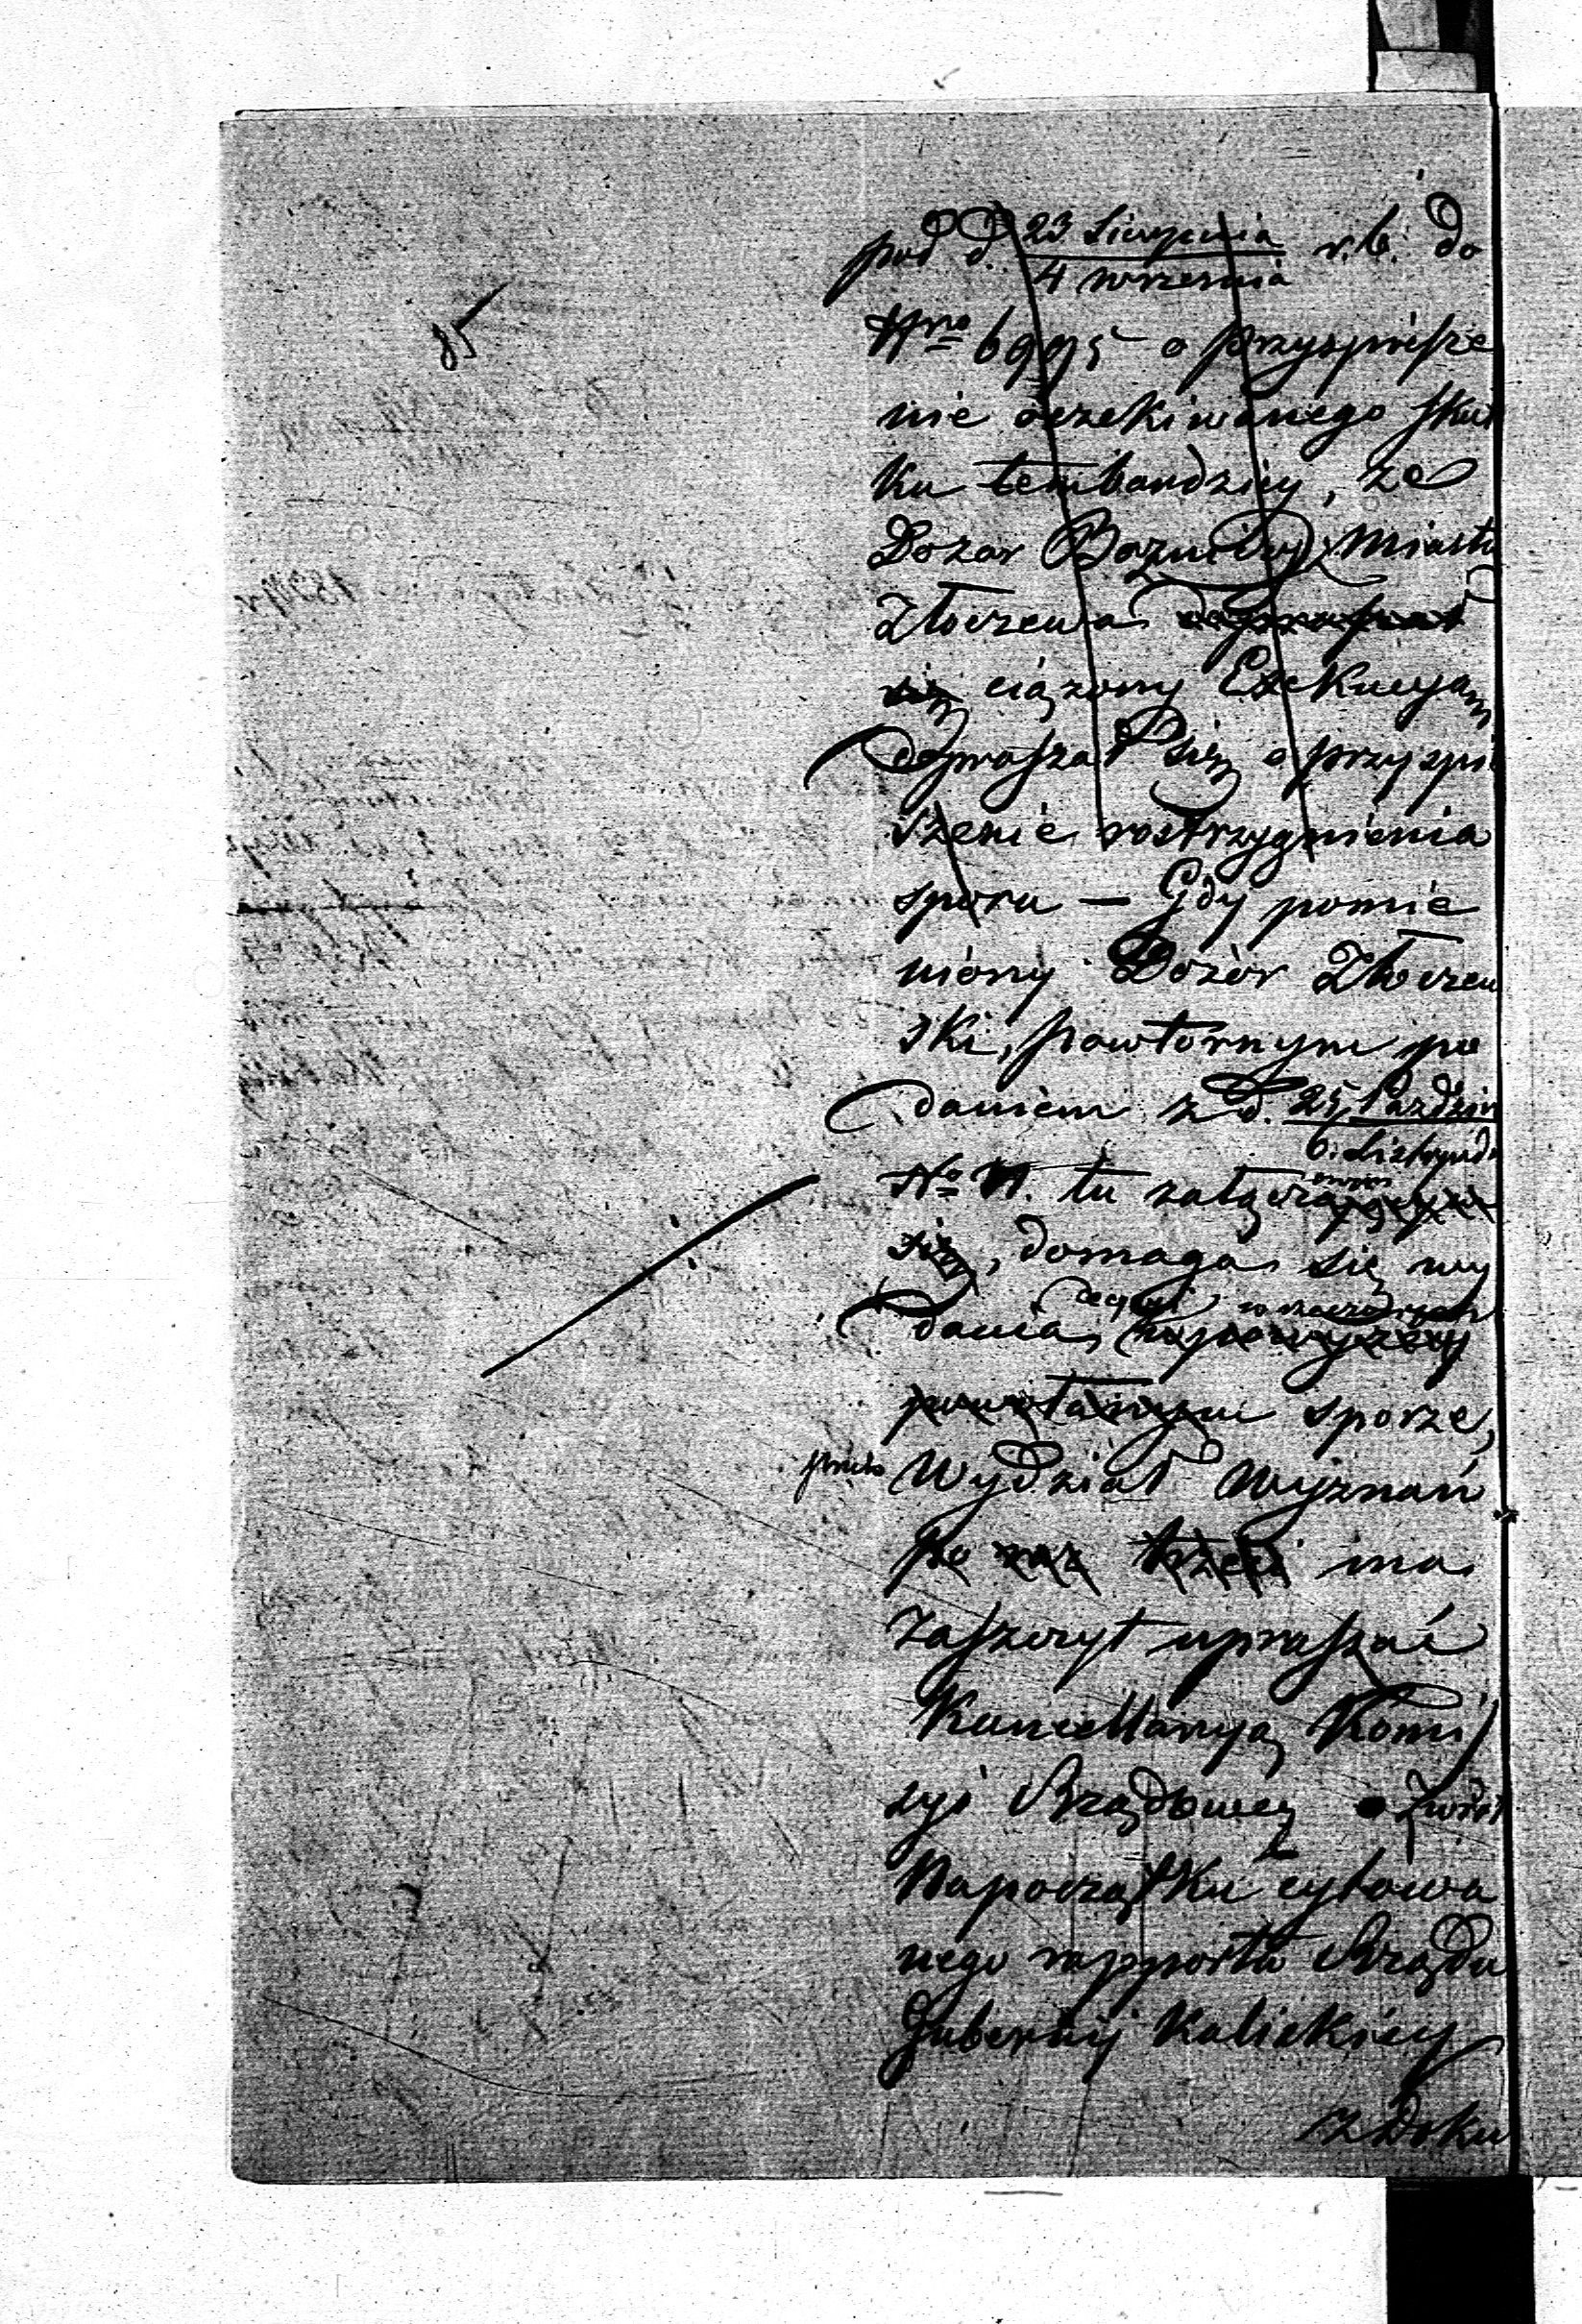 85
pod d. 23 Sierpnia / 4 września r. b. do
Nro 6995 o przyspiesze
nie oczekiwanego skut
ku tembardziey, że
Dozór Bożniczy Miasta
Złoczewa dopraszał
się ciążony Exekucyą
dopraszał się o przyspie
szenie rostrzygnienia
sporu — Gdy pomie
niony Dozór Złoczew
ski, powtórnym po
daniem z d. 25 Paździer
6 Listopada
No tu załączo
się, domaga się wy
dania decyzyi w
powołanym sporze,
przeto Wydział Wyznań
po raz trzeci ma
zaszczyt upraszać
Kancellaryą Komis
syi Rządowey o zwrot
Napoczątku cytowa
nego rapportu Rządu
Gubernij Kaliskiey
z Doku